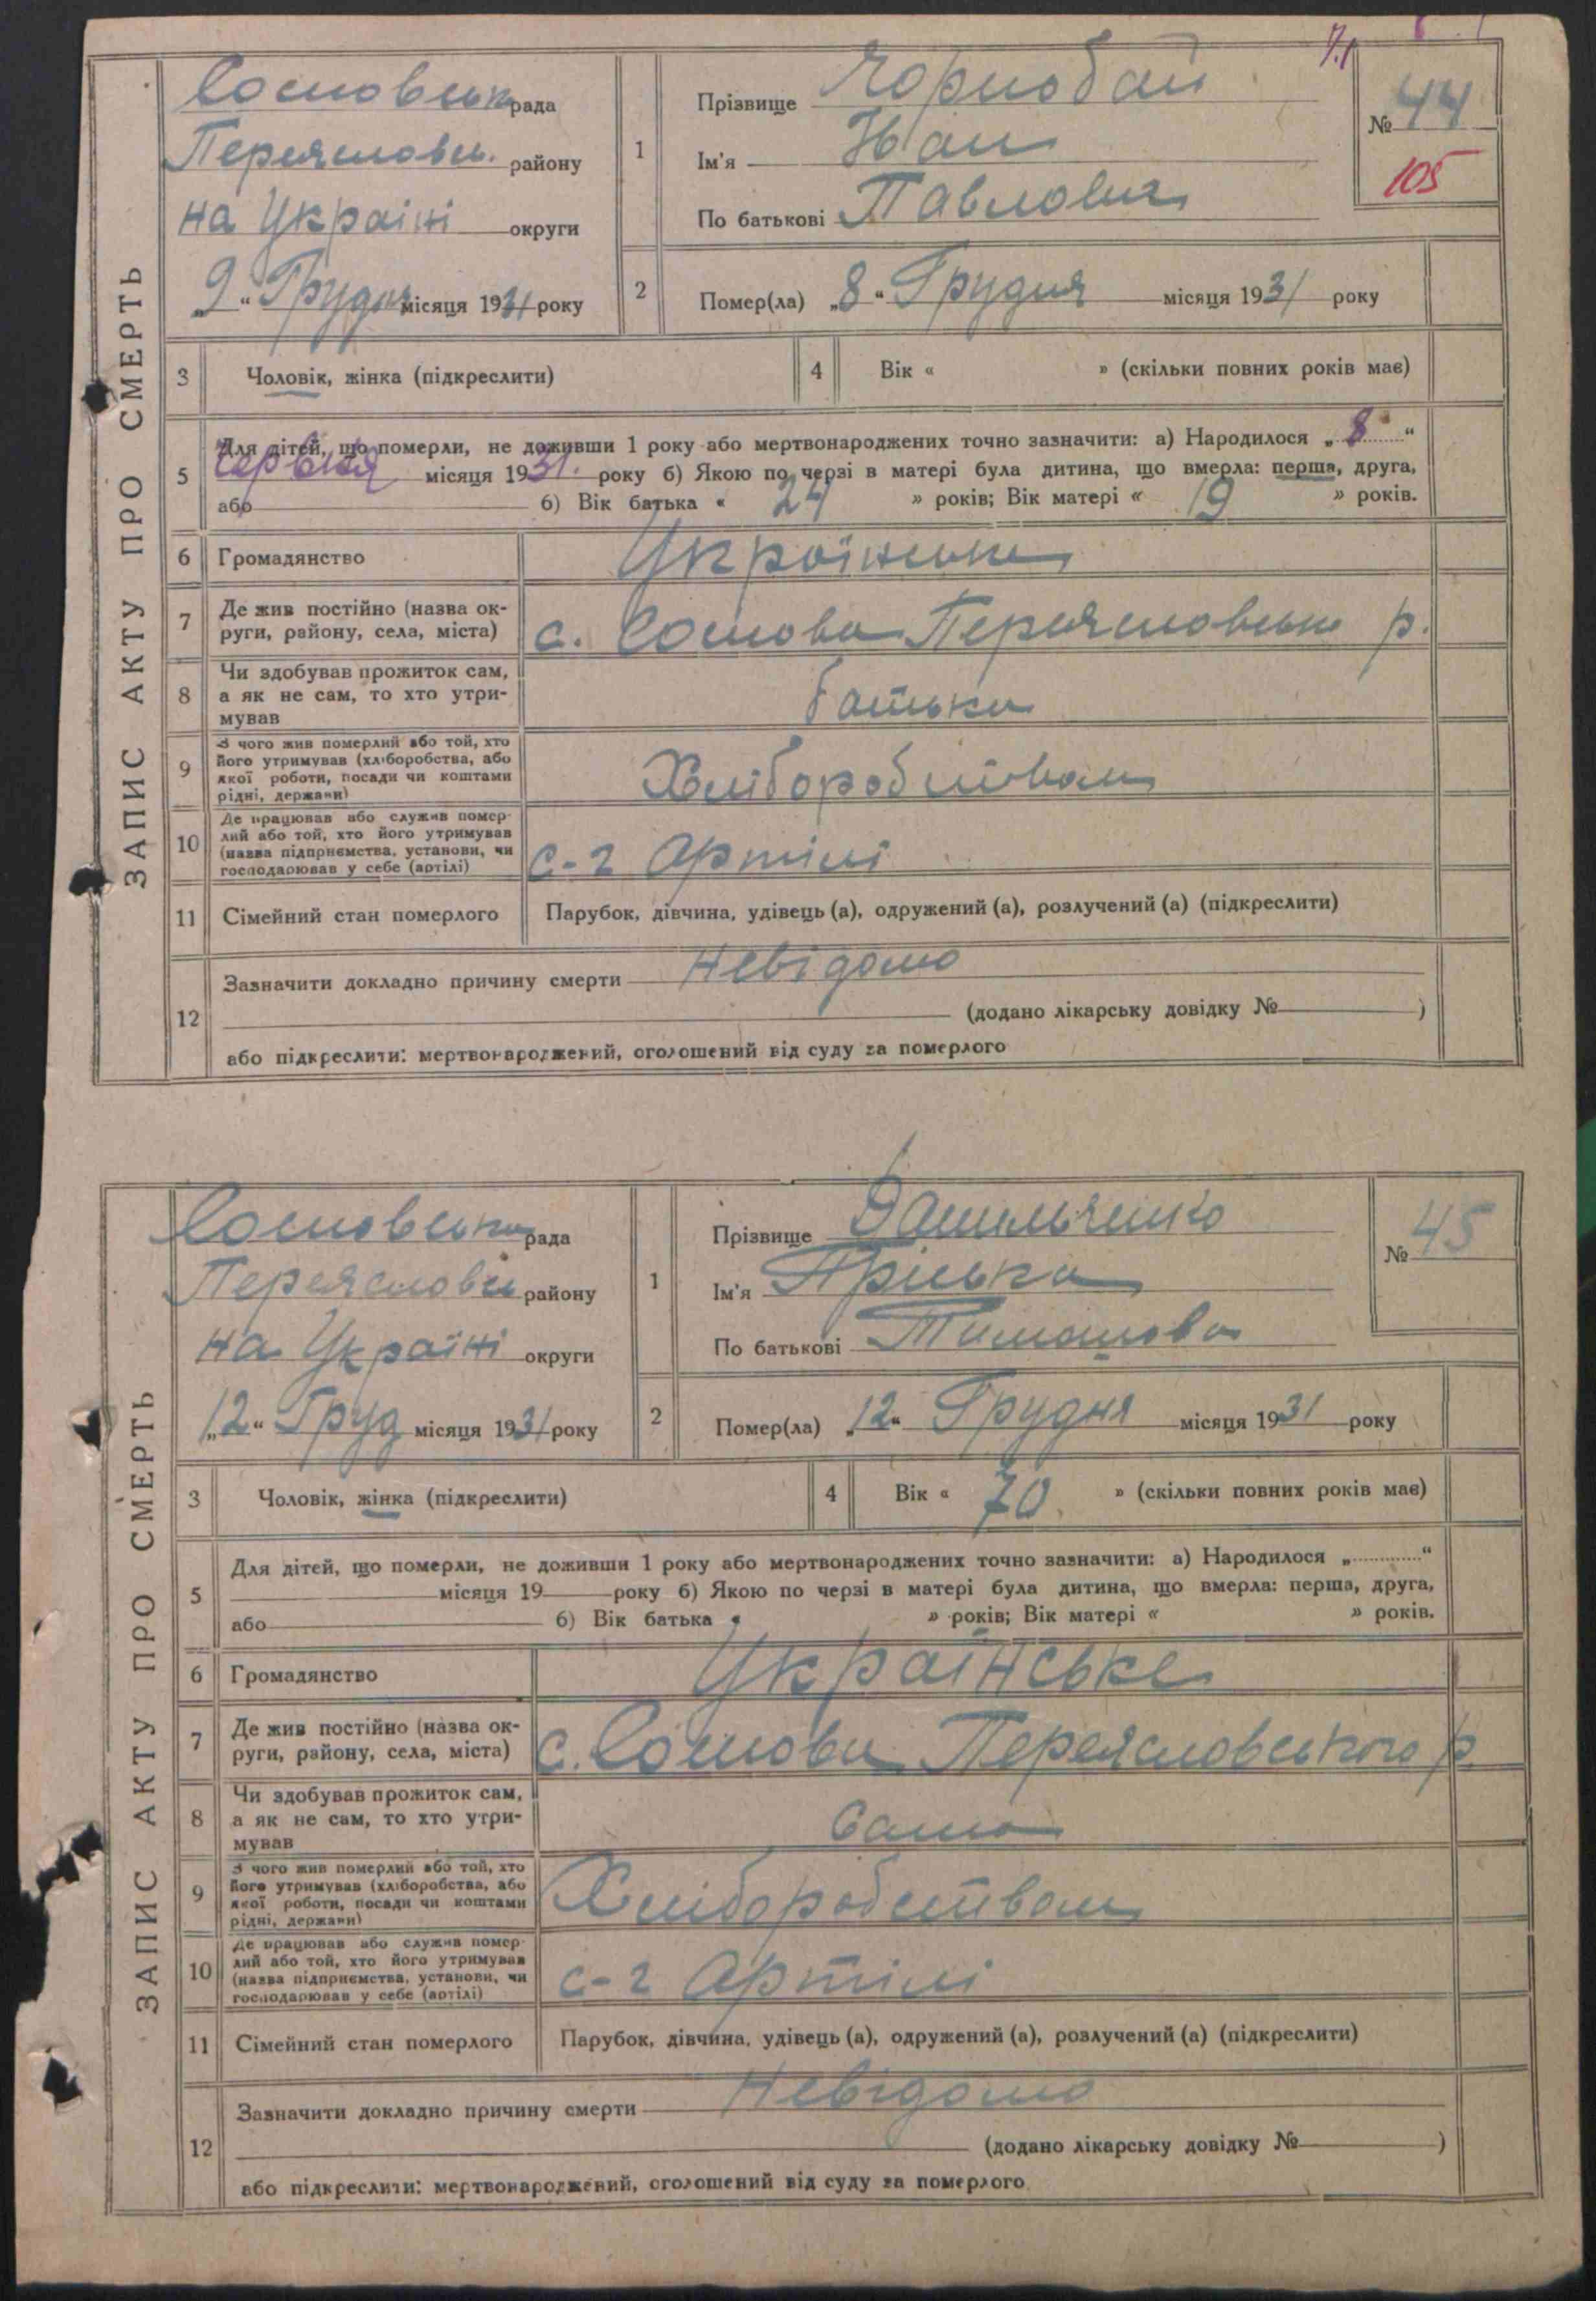 ЗАПИС АКТУ ПРО СМЕРТЬ
Сосновська рада
Переяславськ. району
на Україні округи
„9“ Грудня місяця 1931 року
1
Прізвище Чорнобай
Ім'я Іван
По батькові Павлович
№ 44
105
2
Помер(ла) „8“ Грудня місяця 1931 року
3
Чоловік, жінка (підкреслити)
4
Вік « » (скільки повних років має)
5
Для дітей, що померли, не доживши 1 року або мертвонароджених точно зазначити: а) Народилося „8“
червня місяця 1931. року б) Якою по черзі в матері була дитина, що вмерла: перша, друга,
або 6) Вік батька « 24 » років; Вік матері « 19 » років.
6
Громадянство
Українське
7
Де жив постійно (назва ок-
руги, району, села, міста)
с. Соснова Переяславськ р.
8
Чи здобував прожиток сам,
а як не сам, то хто утри-
мував
батько
9
З чого жив померлий або той, хто
його утримував (хліборобства, або
якої роботи, посади чи коштами
рідні, держави)
Хліборобством
10
Де працював або служив помер-
лий або той, хто його утримував
(назва підприємства, установи, чи
господарював у себе (артілі)
с-г Артілі
11
Сімейний стан померлого
Парубок, дівчина, удівець (а), одружений (а), розлучений (а) (підкреслити)
12
Зазначити докладно причину смерти Невідомо
(додано лікарську довідку № )
або підкреслити: мертвонароджений, оголошений від суду за померлого
ЗАПИС АКТУ ПРО СМЕРТЬ
Сосновська рада
Переяславськ району
на Україні округи
„12“ Груд місяця 1931 року
1
Прізвище Данильченко
Ім'я Пріська
По батькові Тимошова
№ 45
2
Помер(ла) „12“ Грудня місяця 1931 року
3
Чоловік, жінка (підкреслити)
4
Вік « 70 » (скільки повних років має)
5
Для дітей, що померли, не доживши 1 року або мертвонароджених точно зазначити: а) Народилося „ “
місяця 19 року б) Якою по черзі в матері була дитина, що вмерла: перша, друга,
або 6) Вік батька « » років; Вік матері « » років.
6
Громадянство
Українське
7
Де жив постійно (назва ок-
руги, району, села, міста)
с. Соснови Переяславського р
8
Чи здобував прожиток сам,
а як не сам, то хто утри-
мував
Сама
9
З чого жив померлий або той, хто
його утримував (хліборобства, або
якої роботи, посади чи коштами
рідні, держави)
Хліборобством
10
Де працював або служив помер-
лий або той, хто його утримував
(назва підприємства, установи, чи
господарював у себе (артілі)
с-г Артілі
11
Сімейний стан померлого
Парубок, дівчина, удівець (а), одружений (а), розлучений (а) (підкреслити)
12
Зазначити докладно причину смерти Невідомо
(додано лікарську довідку № )
або підкреслити: мертвонароджений, оголошений від суду за померлого